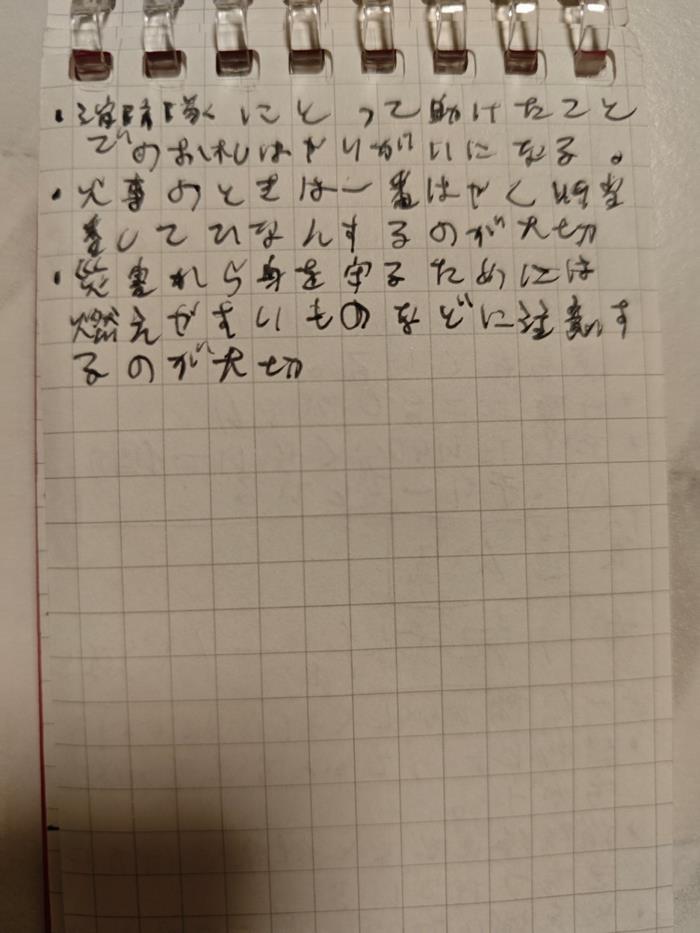 ・消防隊にとって助けたこと
でのお礼はやりがいになる。
・火事のときは一番はやく
してひなんするのが大切
・災害から身を守るためには
燃えやすいものなどに注意す
るのが大切